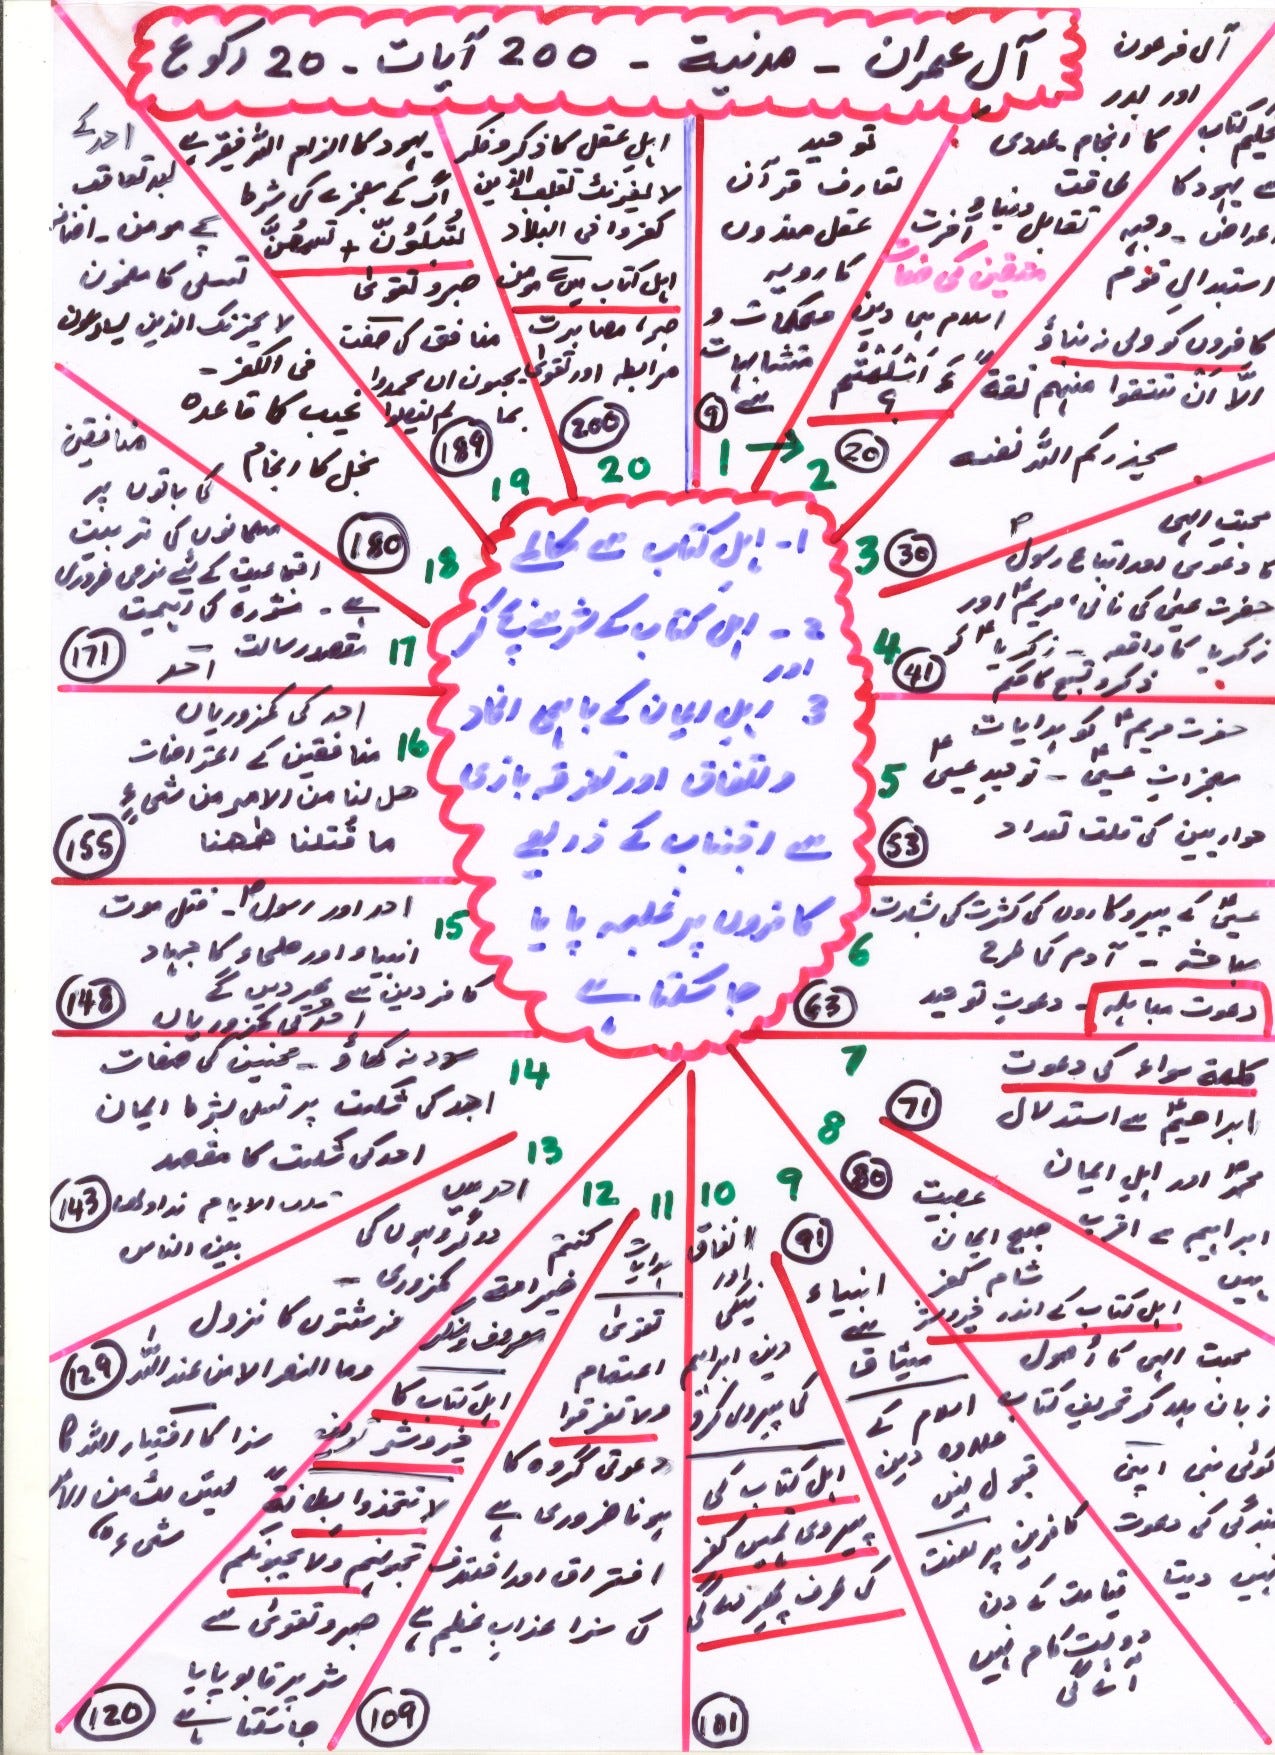 آل عمران - مدنیة - 200 آیات - 20 رکوع
1- اہل کتاب سے مکالمے
2- اہل کتاب کے شر سے بچ کر
اور
3 اہل ایمان کے باہمی اتحاد
واتفاق اور تفرقہ بازی
سے اجتناب کے ذریعے
کافروں پر غلبہ پایا
جا سکتا ہے
1 →
توحید
تعارف قرآن
عقل مندوں
کا رویہ
محکمات و
متشابہات
سے
9
2
آل فرعون
اور بدر
کا انجام عددی
طاقت
تقابل دنیا و آخرت
متقین کی صفات
اسلام ہی دین
ءَ اَسْلَمْتُم
؟
20
3
استبدالِ قوم
کافروں کو ولی نہ بناؤ
الَّا اَنْ تتقوا منہم تقة
یحذرکم اللہ نفسہ
30
4
محبت الہی
کا دعوی اور اتباع رسول ؐ
حضرت عیسیٰ کی نانی، مریم اور
زکریا کا واقعہ - زکریا کو
ذکر و تسبیح کا حکم
41
5
حضرت مریم کو ہدایات
معجزات عیسیٰ - توحیدِ عیسیٰ
حواریین کی قلت تعداد
53
6
عیسیٰ کے پیروکاروں کی کثرت کی بشارت
مباحثہ - آدم کی طرح
دعوت مباہلہ - دعوتِ توحید
63
7
کلمة سواء کی دعوت
ابراھیم سے استدلال
محمد ؐ اور اہلِ ایمان
ابراہیم سے اقرب
ہیں
71
8
عصبیت
صبح ایمان
شام کفر
اہل کتاب کے اندر خیر و شر
محبت الہی کا اُصول
زبان بدل کر تحریف کتاب
کوئی نبی اپنی
بندگی کی دعوت
نہیں دیتا
80
9
انبیاء
سے
میثاق
اسلام کے
علاوہ دین
قبول نہیں
کافرین پر لعنت
قیامت کے دن
دولت کام نہیں
آئے گی
91
10
انفاق
اور
نیکی
دین ابراہیم
کی پیروی کرو
اہل کتاب کی
پیروی تمہیں کفر
کی طرف پھیر دے گی
101
11
ہدایات
تقویٰ
اعتصام
ولا تفرقوا
دعوتی گروہ کا
ہونا ضروری ہے
افتراق اور اختلاف
کی سزا عذاب عظیم ہے
109
12
کنتم
خیر امة
معروف و منکر
اہل کتاب کا
خیر و شر
لا تتخذوا بطانة
تحبونہم ولا یحبونکم
صبر و تقویٰ سے
شر پر قابو پایا
جا سکتا ہے
120
13
احد میں
دو گروہوں کی
کمزوری -
فرشتوں کا نزول
وما النصر الا من عند اللہ
سزا کا اختیار اللہ کا
لیس لک من الامر
شیء
129
14
سود نہ کھاؤ - محسنین کی صفات
احد کی شکست پر تسلی بشرط ایمان
احد کی شکست کا مقصد
تلک الایام نداولھا
بین الناس
143
15
احد اور رسول ؐ - قتل موت
انبیاء اور صلحاء کا جہاد
کافر دین سے پھیر دیں گے
احد کی کمزوریاں
148
16
احد کی کمزوریاں
منافقین کے اعتراضات
ھل لنا من الامر من شیءٍ
ما قُتلنا ھٰھنا
155
17
منافقین
کی باتوں پر
مسلمانوں کی تربیت
اجتماعیت کے لئے نرمی ضروری
ہے - شورہ کی اہمیت
مقصد رسالت
احد
171
18
احد کے
بعد تعاقب
سچے مومن -
تسلی کا مضمون
لا یحزنک الذین یسارعون
فی الکفر -
غیب کا قاعدہ
بخل کا انجام
180
19
یہود کا الزام اللہ فقیر ہے
آگ کے معجزے کی شرط
لَتُبْلَوُنَّ + تسمعُنَّ
صبر و تقویٰ
منافق کی صفت
یحبون ان یحمدوا
بما لم یفعلوا
189
20
اہل عقل کا ذکر و فکر
لا یغرنک تقلب الذین
کفروا فی البلاد
اہل کتاب میں سے مومن
صبر، مصابرت
مرابطہ اور تقویٰ
200